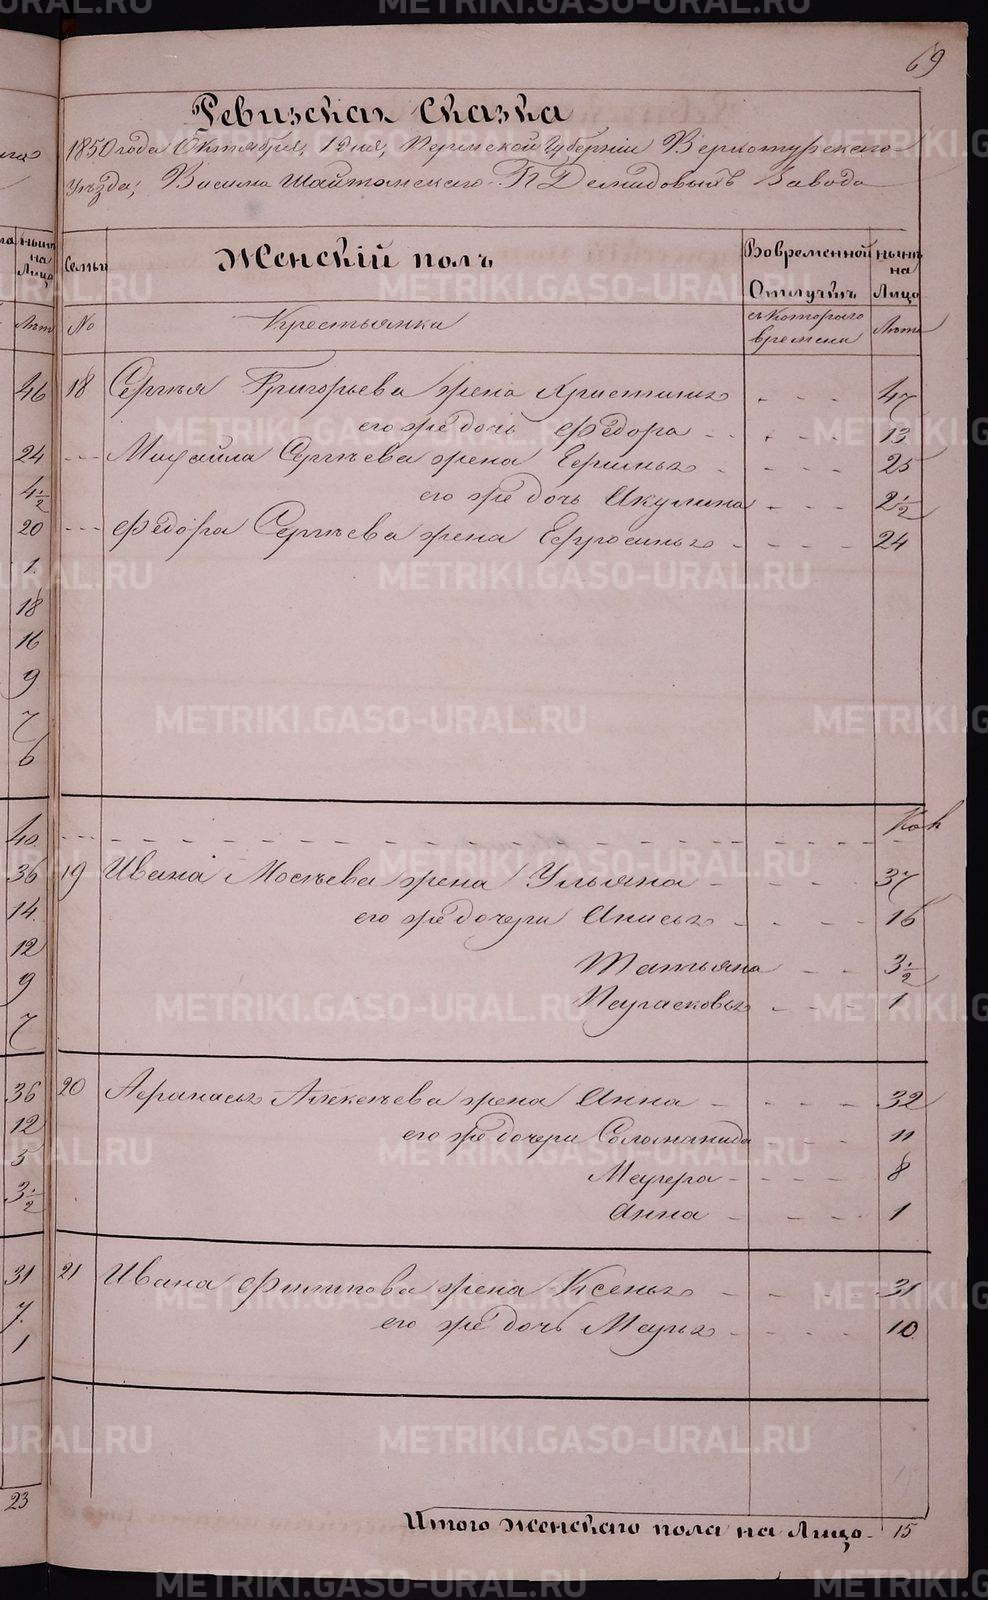 69
Ревизская Сказка
1850 года Октября, 19 дня, Пермской Губерніи Верхотурскаго
Уѣзда, Висимо Шайтанскаго П Демидовыхъ Завода
Семьи
Женскій полъ
Вовременной Отлучкѣ
нынѣ на Лицо
№
Крестьянка
съ Котораго времени
Лѣта
18 Сергѣя Григорьева жена Христинья - - - 47
его же дочь Федора - - - 13
--- Михайла Сергѣева жена Ефимья - - - - 25
его же дочь Акулина - - - 2 1/2
--- Федора Сергѣева жена Ефросинья - - - - 24
19 Ивана Мосѣева жена Ульяна - - - - 37
его же дочери Анисья - - - - 16
Татьяна - - - 3 1/2
Парасковья - - - 1
20 Афанасья Алексѣева жена Анна - - - - 32
его же дочери Соломанида - - - 11
Мавра - - - - 8
Анна - - - - 1
21 Ивана Филиппова жена Ксенья - - - 31
его же дочь Марья - - - - 10
Итого женскаго пола на Лицо - 15
нынѣ на Лицо
Лѣта
46
24
4 1/2
20
1
18
16
9
7
6
40
36
14
12
9
7
36
12
5
3 1/2
31
7
1
23
METRIKI.GASO-URAL.RU